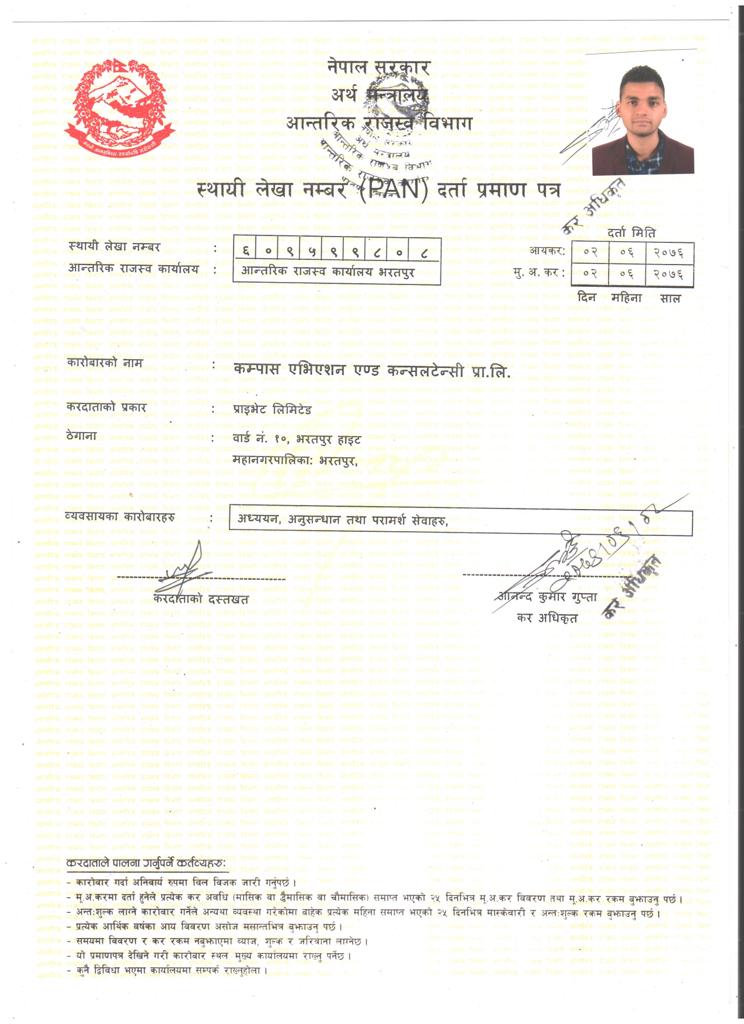 नेपाल सरकार
अर्थ मन्त्रालय
आन्तरिक राजस्व विभाग
स्थायी लेखा नम्बर (PAN) दर्ता प्रमाण पत्र
कर अधिकृत
दर्ता मिति
स्थायी लेखा नम्बर : ६ ० ९ ५ ९ ९ ८ ० ८
आयकर: ०२ ०६ २०७६
आन्तरिक राजस्व कार्यालय : आन्तरिक राजस्व कार्यालय भरतपुर
मु. अ. कर : ०२ ०६ २०७६
दिन महिना साल
कारोबारको नाम : कम्पास एभिएशन एण्ड कन्सलटेन्सी प्रा.लि.
करदाताको प्रकार : प्राइभेट लिमिटेड
ठेगाना : वार्ड नं. १०, भरतपुर हाइट
महानगरपालिका: भरतपुर,
व्यवसायका कारोबारहरु : अध्ययन, अनुसन्धान तथा परामर्श सेवाहरु,
करदाताको दस्तखत
आनन्द कुमार गुप्ता
कर अधिकृत
कर अधिकृत
करदाताले पालना गर्नुपर्ने कर्तव्यहरु:
- कारोबार गर्दा अनिवार्य रुपमा बिल बिजक जारी गर्नुपर्छ ।
- मू.अ.करमा दर्ता हुनेले प्रत्येक कर अवधि (मासिक वा द्वैमासिक वा चौमासिक) समाप्त भएको २५ दिनभित्र मू.अ.कर बिबरण तथा मू.अ.कर रकम बुझाउनु पर्छ ।
- अन्तःशुल्क लाग्ने कारोबार गर्नेले अन्यथा व्यवस्था गरेकोमा बाहेक प्रत्येक महिना समाप्त भएको २५ दिनभित्र मास्केवारी र अन्तःशुल्क रकम बुझाउनु पर्छ ।
- प्रत्येक आर्थिक बर्षका आय बिबरण असोज मसान्तभित्र बुझाउनु पर्छ ।
- समयमा बिबरण र कर रकम नबुझाएमा ब्याज, शुल्क र जरिवाना लाग्नेछ ।
- यो प्रमाणपत्र देखिने गरी कारोबार स्थल मुख्य कार्यालयमा राख्नु पर्नेछ ।
- कुनै द्विविधा भएमा कार्यालयमा सम्पर्क राख्नुहोला ।